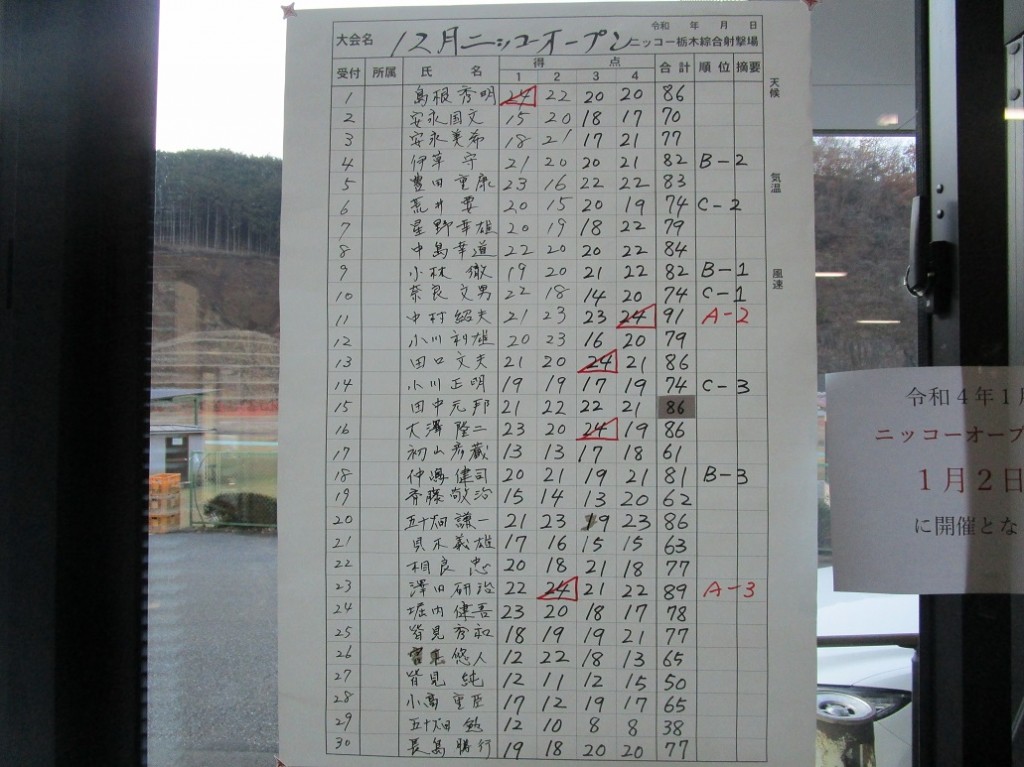 令和 年 月 日
大会名 12月ニッコーオープン ニッコー栃木綜合射撃場
受付 所属 氏 名 得 点 合計 順位 摘要
1 2 3 4
1 島根 秀明 24 22 20 20 86
2 安永国文 15 20 18 17 70
3 安永美希 18 21 17 21 77
4 伊率 守 21 20 20 21 82 B-2
5 豊田重康 23 16 22 22 83
6 荒井 要 20 15 20 19 74 C-2
7 星野幸雄 20 19 18 22 79
8 中島幸道 22 20 20 22 84
9 小林 徹 19 20 21 22 82 B-1
10 奈良文男 22 18 14 20 74 C-1
11 中村紹夫 21 23 23 24 91 A-2
12 小川利雄 20 23 16 20 79
13 田口文夫 21 20 24 21 86
14 小川正明 19 19 17 19 74 C-3
15 田中元邦 21 22 22 21 86
16 大澤隆二 23 20 24 19 86
17 初山彦蔵 13 13 17 18 61
18 仲嶋健司 20 21 19 21 81 B-3
19 斉藤敬治 15 14 13 20 62
20 五十畑謙一 21 23 19 23 86
21 貝木義雄 17 16 15 15 63
22 相良 忠 20 18 21 18 77
23 澤田研治 22 24 21 22 89 A-3
24 堀内健吾 23 20 18 17 78
25 皆見秀和 18 19 19 21 77
26 悠人 12 22 18 13 65
27 皆見 純 12 11 12 15 50
28 小高重臣 17 12 19 17 65
29 五十畑 勉 12 10 8 8 38
30 長島勝行 19 18 20 20 77
天候
気温
風速
令和4年1月
ニッコーオープ
1月2日
に開催とな